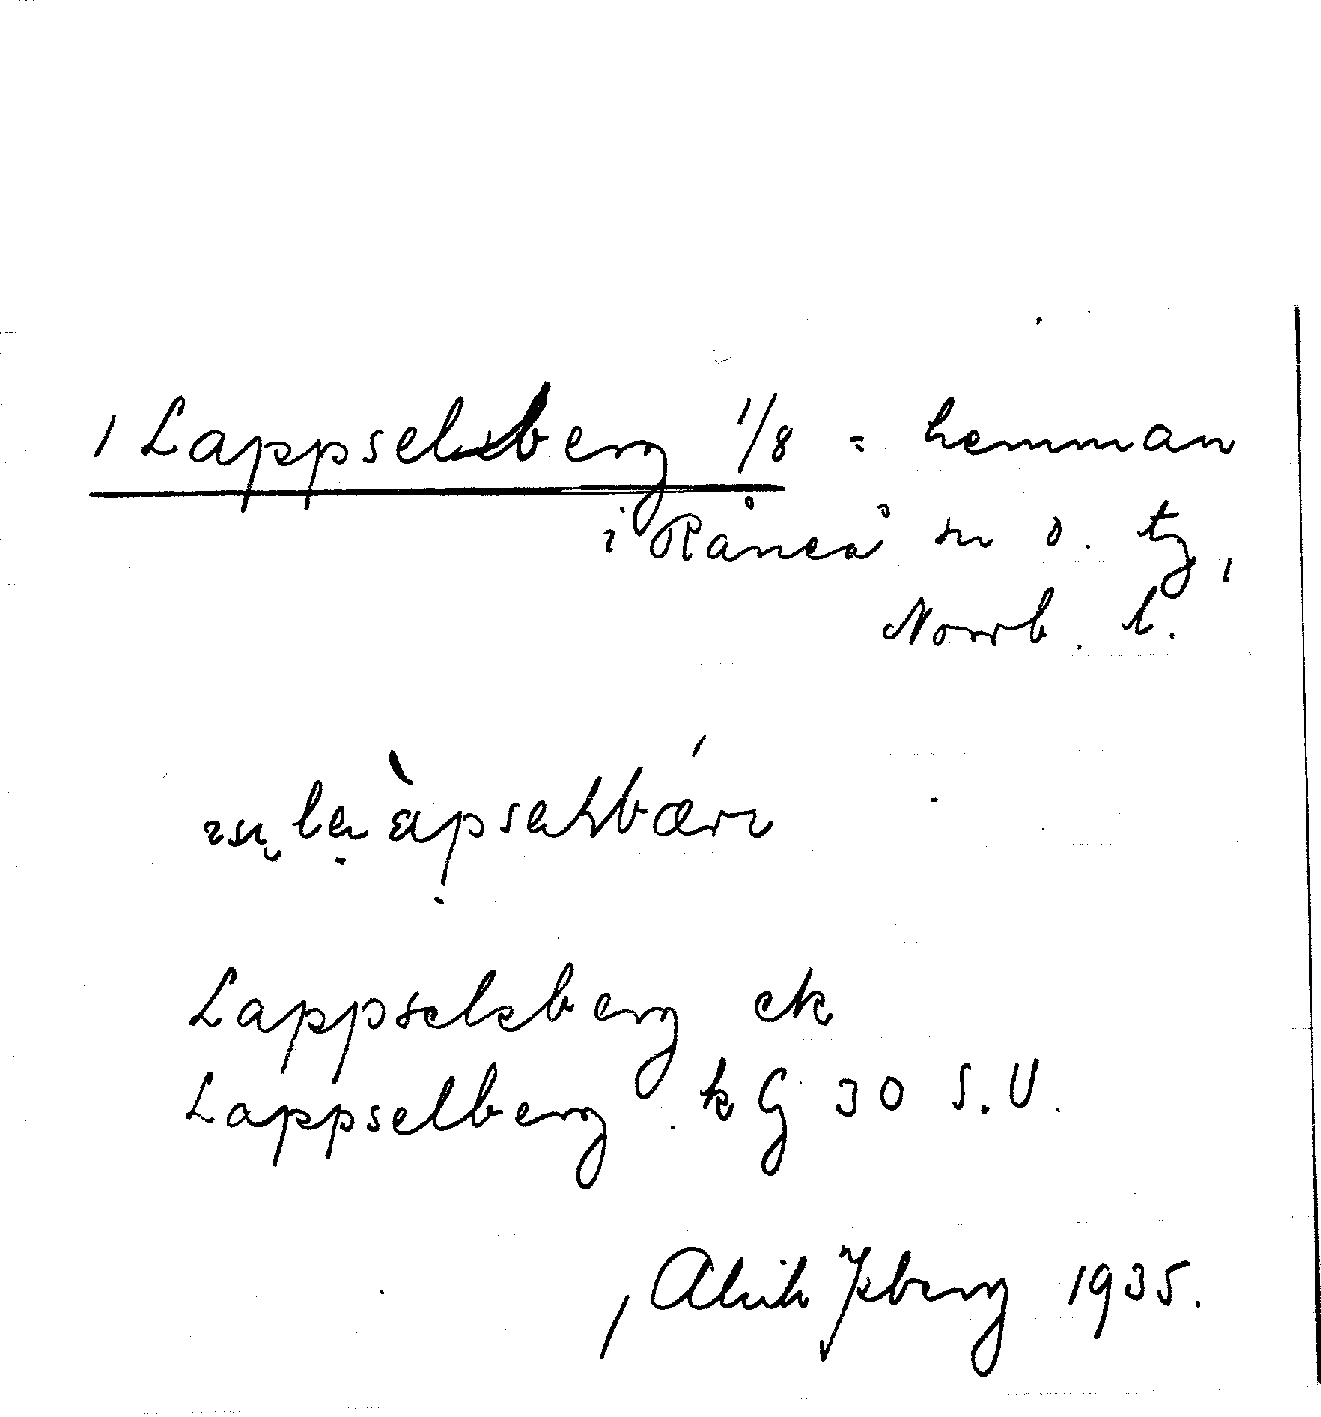 / Lappselsberg 1/8 = hemman
i Råneå sn o. tg,
Norrb. l.
Lappselsberg ek
Lappselberg kG 30 S.U.
, Alrik Isberg 1935.